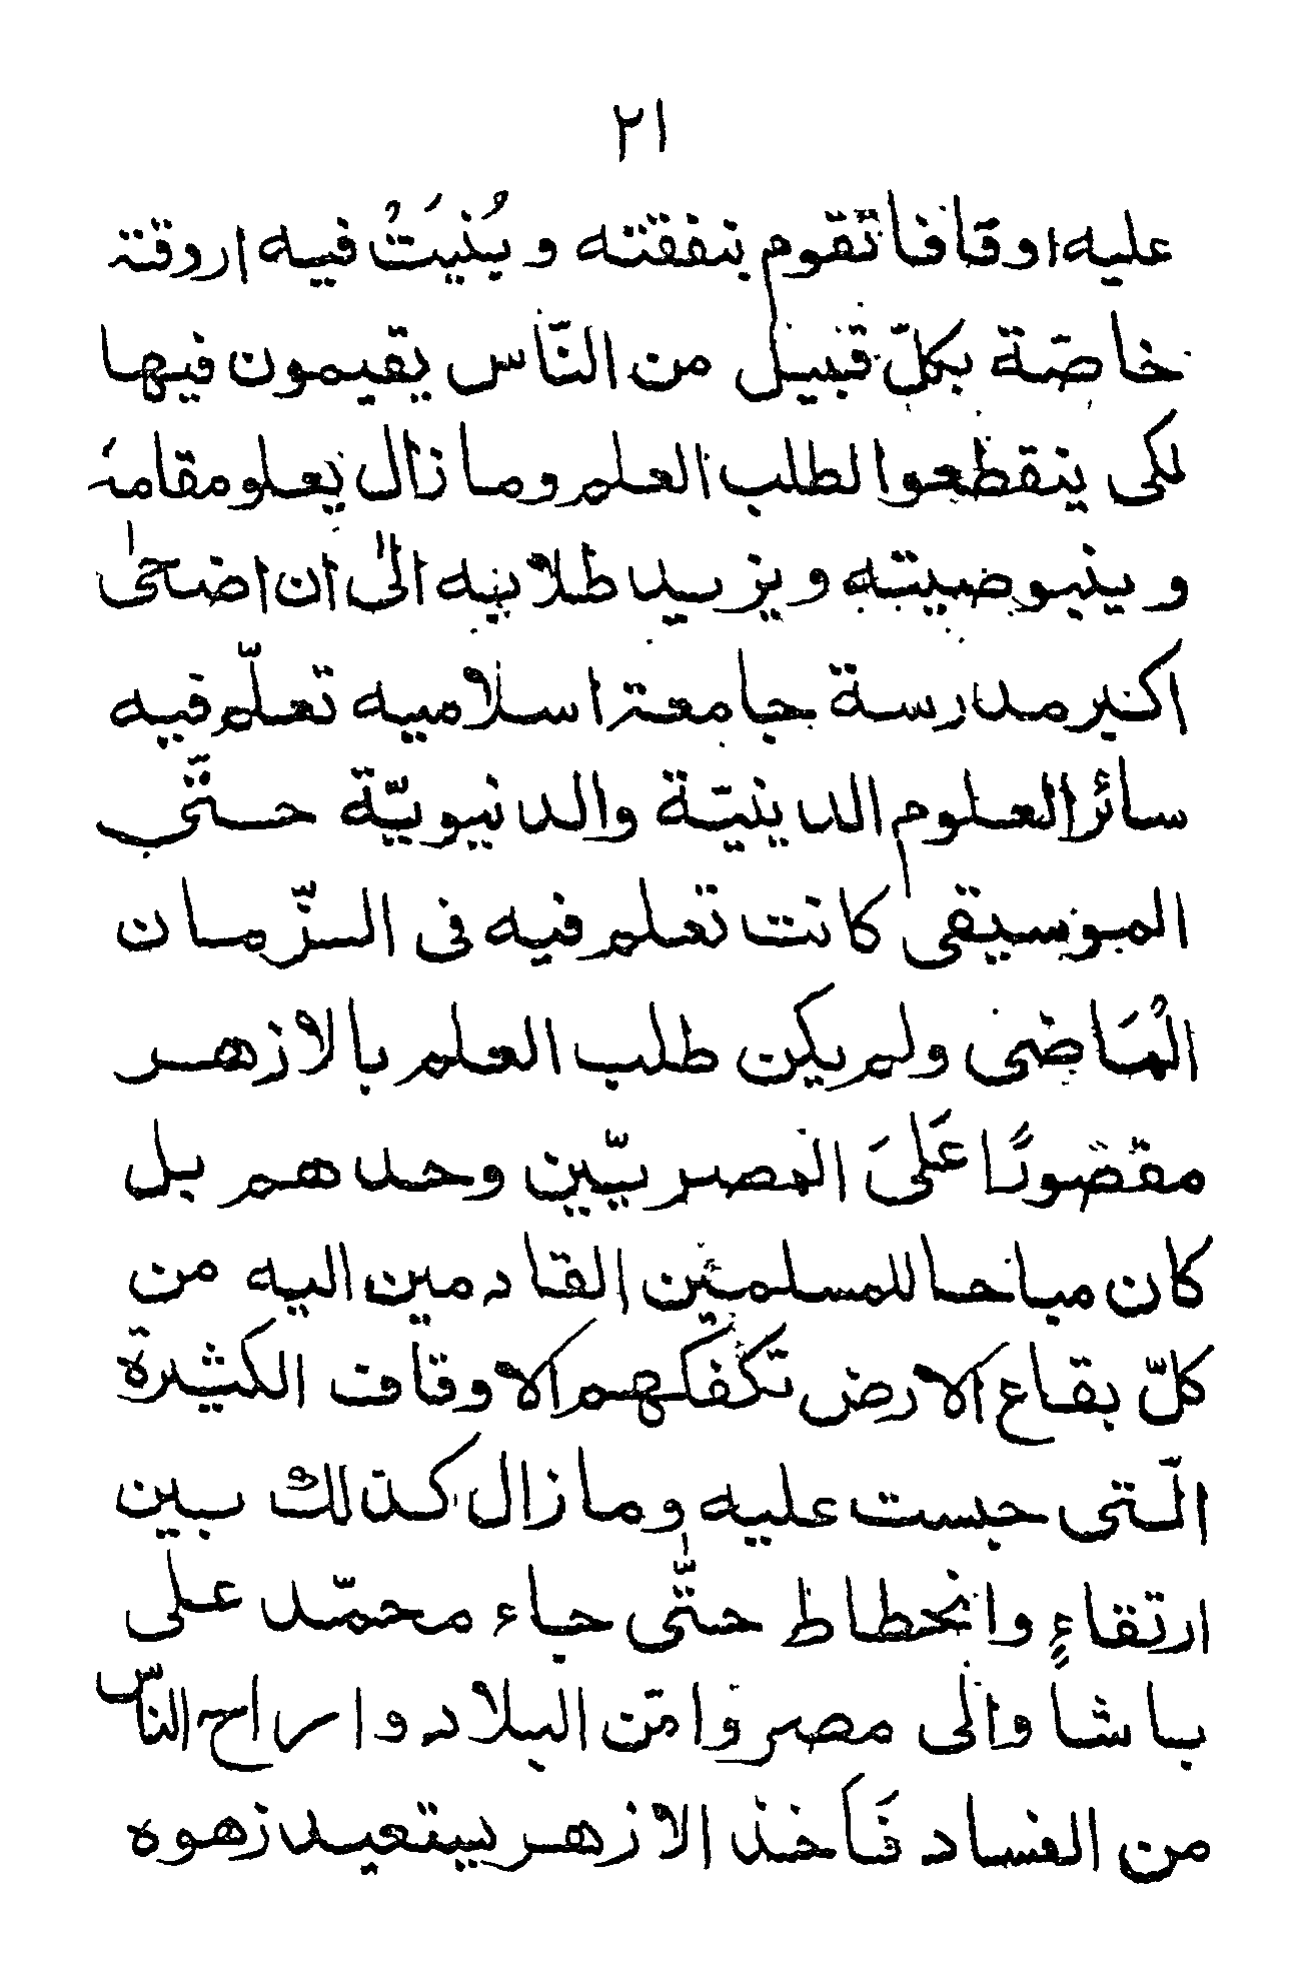 ٢١
عليه اوقافا تقوم بنفقته وبُنيَتْ فيه اروقة
خاصّة بكلّ قبيل من النّاس يقيمون فيها
لكى ينقطعوا لطلب العلم وما زال يعلو مقامه
وينبو صيته ويزيد طلابه الىٰ ان اضحىٰ
اكبر مدرسة جامعة اسلاميه تعلّم فيه
سائر العلوم الدينيّة والدنيويّة حتّى
الموسيقى كانت تعلم فيه فى الزّمان
الْمَاضى ولم يكن طلب العلم بالازهر
مقصورًا عَلىَ المصريّين وحدهم بل
كان مباحا للمسلمين القادمين اليه من
كلّ بقاع الارض تكفلهم الاوقاف الكثيرة
الّتى حبست عليه وما زال كذلك بين
ارتقاءٍ وانحطاط حتّى جاء محمّد على
باشا والى مصر وامّن البلاد واراح النّاس
من الفساد فَأخذ الازهر يستعيد زهوه